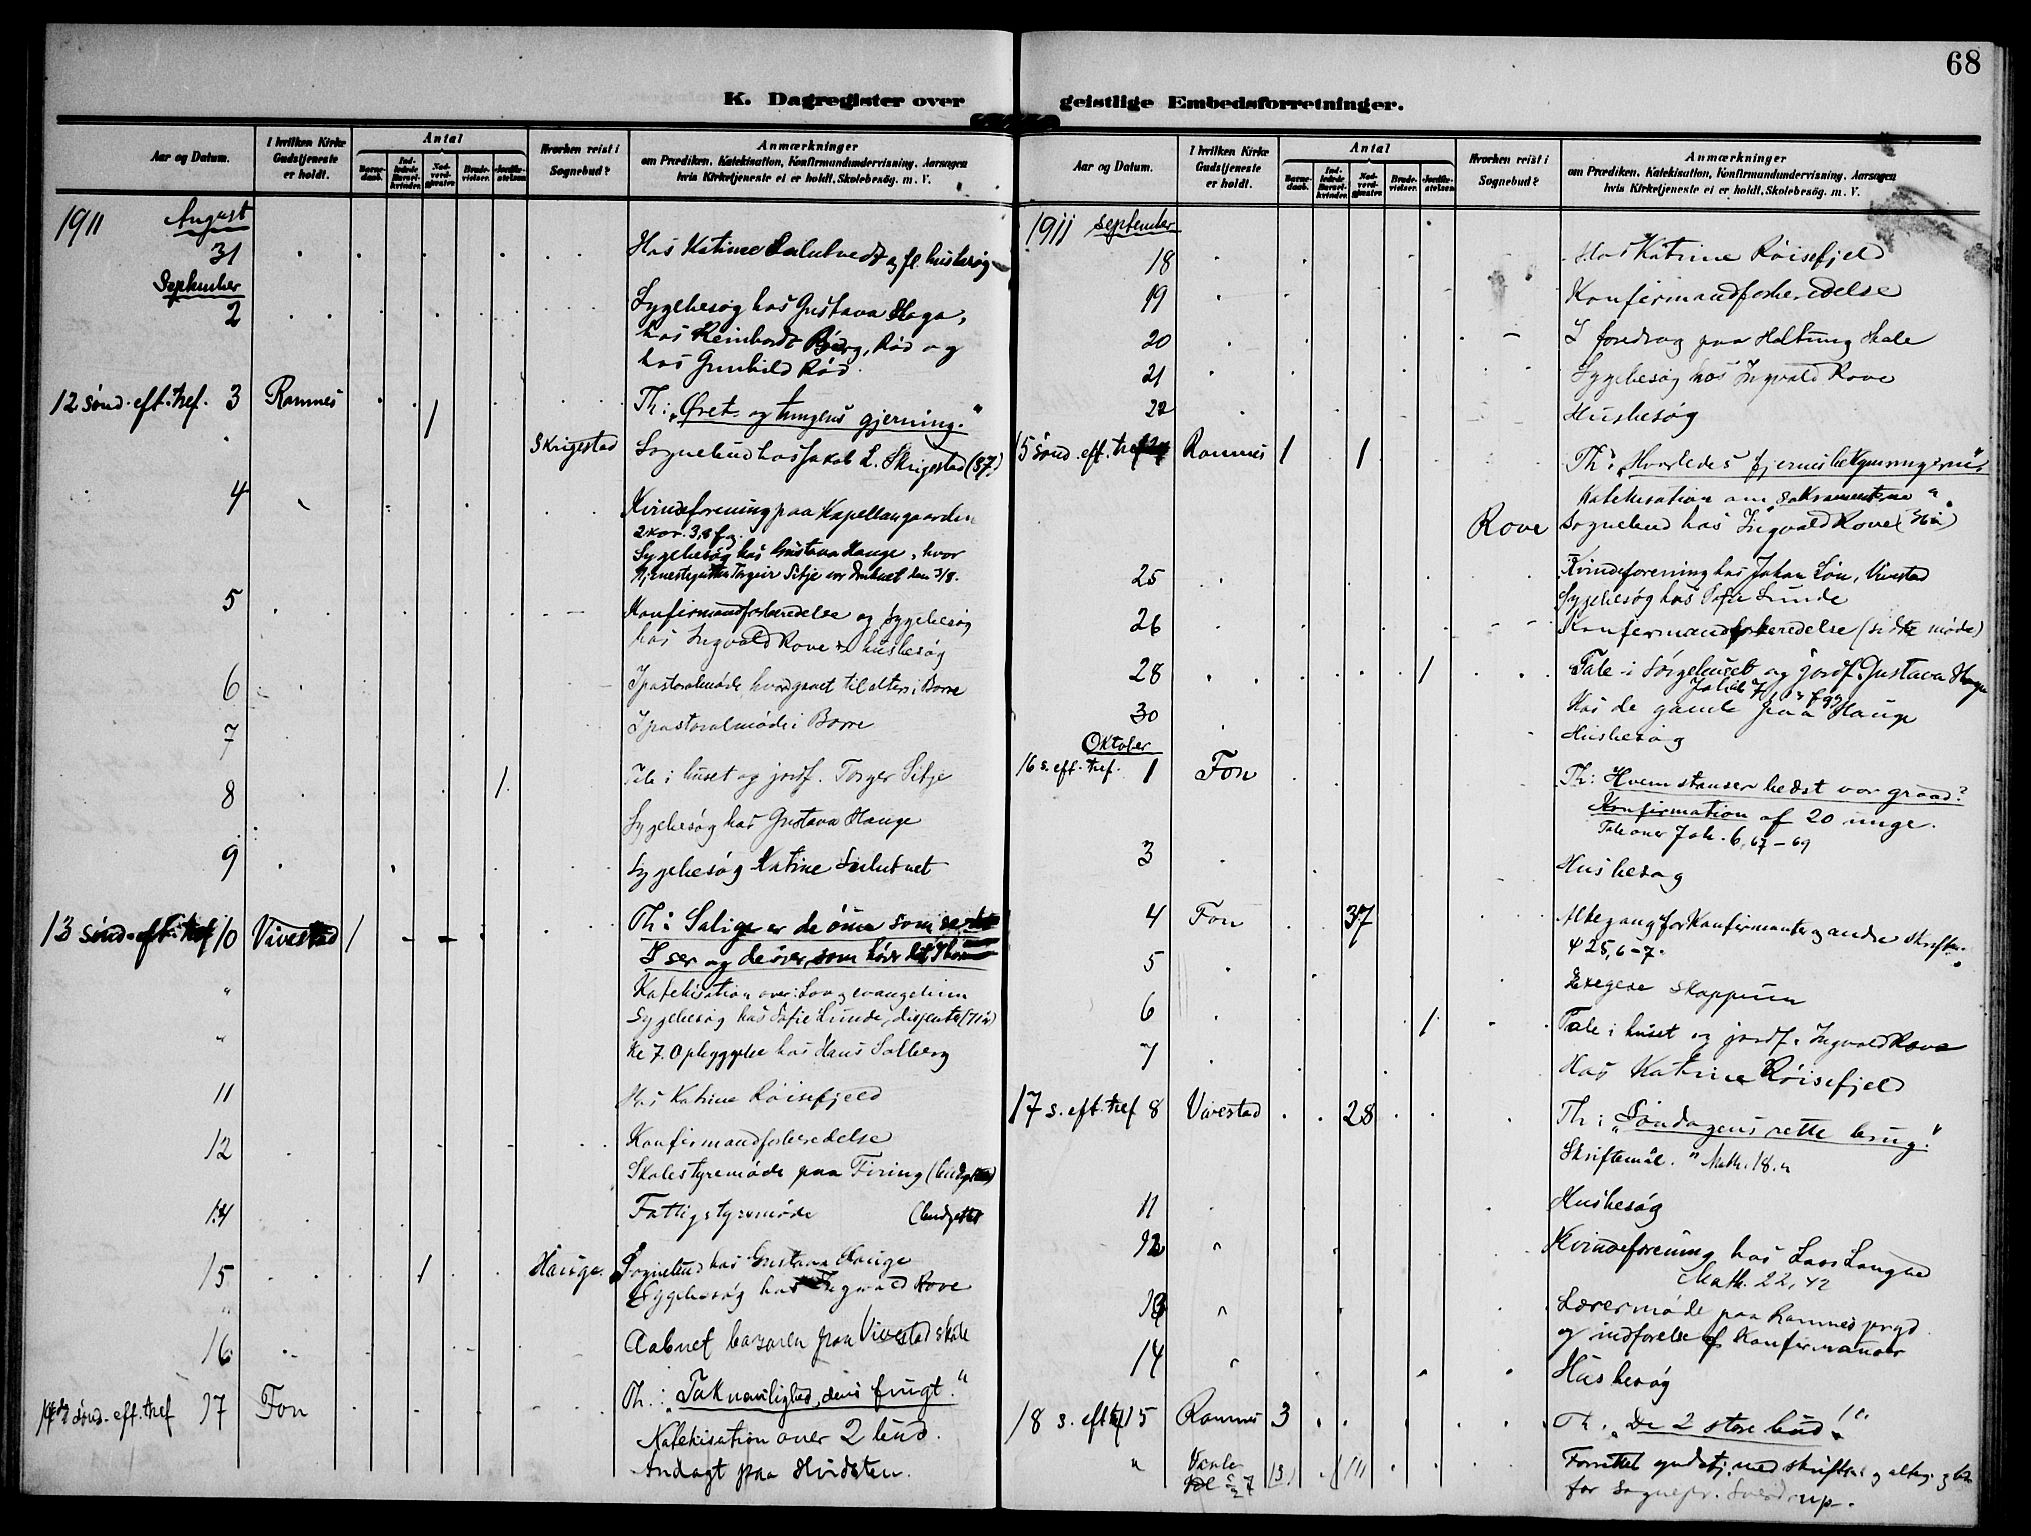 68
K. Dagregister over
Aar og Datum.
I hvilken Kirke Gudstjeneste er holdt.
Antal
Barnedaab.
Indledede Barselkvinder.
Nadverdgjæster.
Brudevielser.
Jordfæstelser.
Hvorhen reist i Sognebud?
Anmærkninger
om Prædiken, Katekisation, Konfirmandundervisning, Aarsagen
hvis Kirketjeneste ei er holdt, Skolebesøg. m. V.
1911 August
31 Hos Katrine og fl. husbesøg
September
2 Sygebesøg hos Gustava Haga,
hos Reinhardt Berg, Rød og
hos Gunhild Rød.
12 sønd. eft. tref. 3 Ramnes 1 Th: "Øret- og tungens gjerning."
Skrigestad Sognebud hos Jakob L. Skrigestad (87)
4 Kvindeforening paa Kapellangaarden
2 kor. 3,8 fg.
Sygebesøg hos Gustava Hauge, hvor
Tjenestegutten Torgeir Sitje var druknet den 3/8.
5 Konfirmandforberedelse og Sygebesøg
hos Ingvald Rove & husbesøg
6 I pastoralmøde til alters i Borre
7 I pastoralmøde i Borre
8 1 Tale i huset og jordf. Torger Sitje
Sygebesøg hos Gustava Hauge
9 Sygebesøg Katrine
13 sønd. eft. tref 10 Vivestad 1 Th: Salige er de øine som ser det
I ser og de ører, som hører det I hører
" Katekisation over: Lov og evangelium
Sygebesøg hos Sofie Lunde, (71 år)
" Kl 7. Opbyggelse hos Hans Solberg
11 Hos Katrine Røisefjeld
12 Konfirmandforberedelse
Skolestyremøde paa Firing (budgettet)
14 Fattigstyremøde (budgettet
15 1 Hauge. Sognebud hos Gustava Hauge
" Sygebesøg hos Ingvald Rove
16 Aabnet basaren paa Vivestad skole
14de sønd. eft. tref 17 Fon Th: "Taknemlighed, dens frugt."
Katekisation over 2 bud.
Andagt paa Hvidsten.
geistlige Embedsforretninger.
Aar og Datum.
I hvilken Kirke Gudstjeneste er holdt.
Antal
Barnedaab.
Indledede Barselkvinder.
Nadverdgjæster.
Brudevielser.
Jordfæstelser.
Hvorhen reist i Sognebud?
Anmærkninger
om Prædiken, Katekisation, Konfirmandundervisning, Aarsagen
hvis Kirketjeneste ei er holdt, Skolebesøg. m. V.
1911 September
18 Hos Katrine Røisefjeld
19 Konfirmandforberedelse
20 I foredrag paa Holtung Skole
21 Sygebesøg hos Ingvald Rove
22 Husbesøg
15 sønd. eft. tref 24 Ramnes 1 1 Th: "Hvorledes fjernes bekymringerne"
Katekisation om "Sakramenterne"
Rove Sognebud hos Ingvald Rove (36 år)
25 Kvindeforening hos Johan Løn, Vivestad
Sygebesøg hos Sofie Lunde
26 Konfirmandforberedelse (sidste møde)
28 1 Tale i Sørgehuset og jordf. Gustava Hauge
30 Hos de gamle paa Hauge
Husbesøg
Oktober
16 s. eft. tref. 1 Fon Th: Hvem stanser bedst vor graad?
Konfirmation af 20 unge.
Tale over Joh. 6, 67-69
3 Husbesøg
4 Fon 37 Altergang for Konfirmanter og andre
25, 6-7.
5 Exegese Skoppum
6 1 Tale i huset og jordf. Ingvald Rove
7 Hos Katrine Røisefjeld
17 s. eft. tref 8 Vivestad 28 Th: "Søndagens rette brug."
Skriftemål. Math. 18.
11 Husbesøg
12 " Kvindeforening hos Lars Langved
Math. 22, 42
13 " Lærermøde paa Ramnes prgd
og indførelse af Konfirmanter
14 " Husbesøg
18 s. eft. tref 15 Ramnes 3 Th: "De 2 store bud"
" Vaale Forrettet gudstj. med skriftem. og alterg.
for sognepr. Sverdrup.